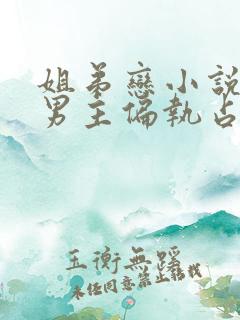 姐弟戀小說
男主偏執占
玉衡無蹊
未經同意禁止轉載